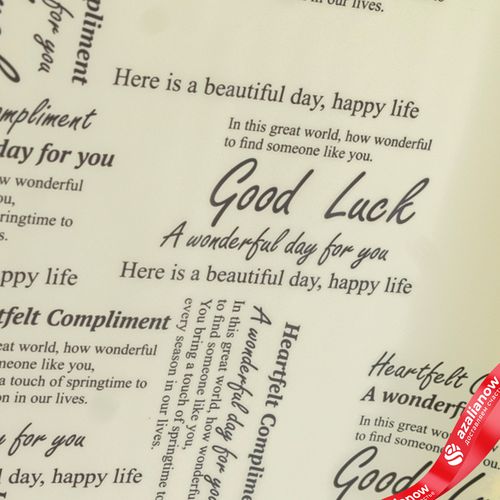 in our lives.
pliment
for you
Here is a beautiful day, happy life
mpliment
day for you
w wonderful
ou,
ringtime to
s.
In this great world, how wonderful
to find someone like you.
Good Luck
A wonderful day for you
Here is a beautiful day, happy life
ppy life
tfelt Compliment
eat world, how wonderful
meone like you,
a touch of springtime to
on in our lives.
Heartfelt Compliment
A wonderful day for you
In this great world, how wonderful
to find someone like you,
You bring a touch of springtime to
every season in our lives.
y for you
l day, happy life
Heartfelt C
A wonderf
In this great
to find someon
you.
Good
azalianow
доставляем счастье
azalianow